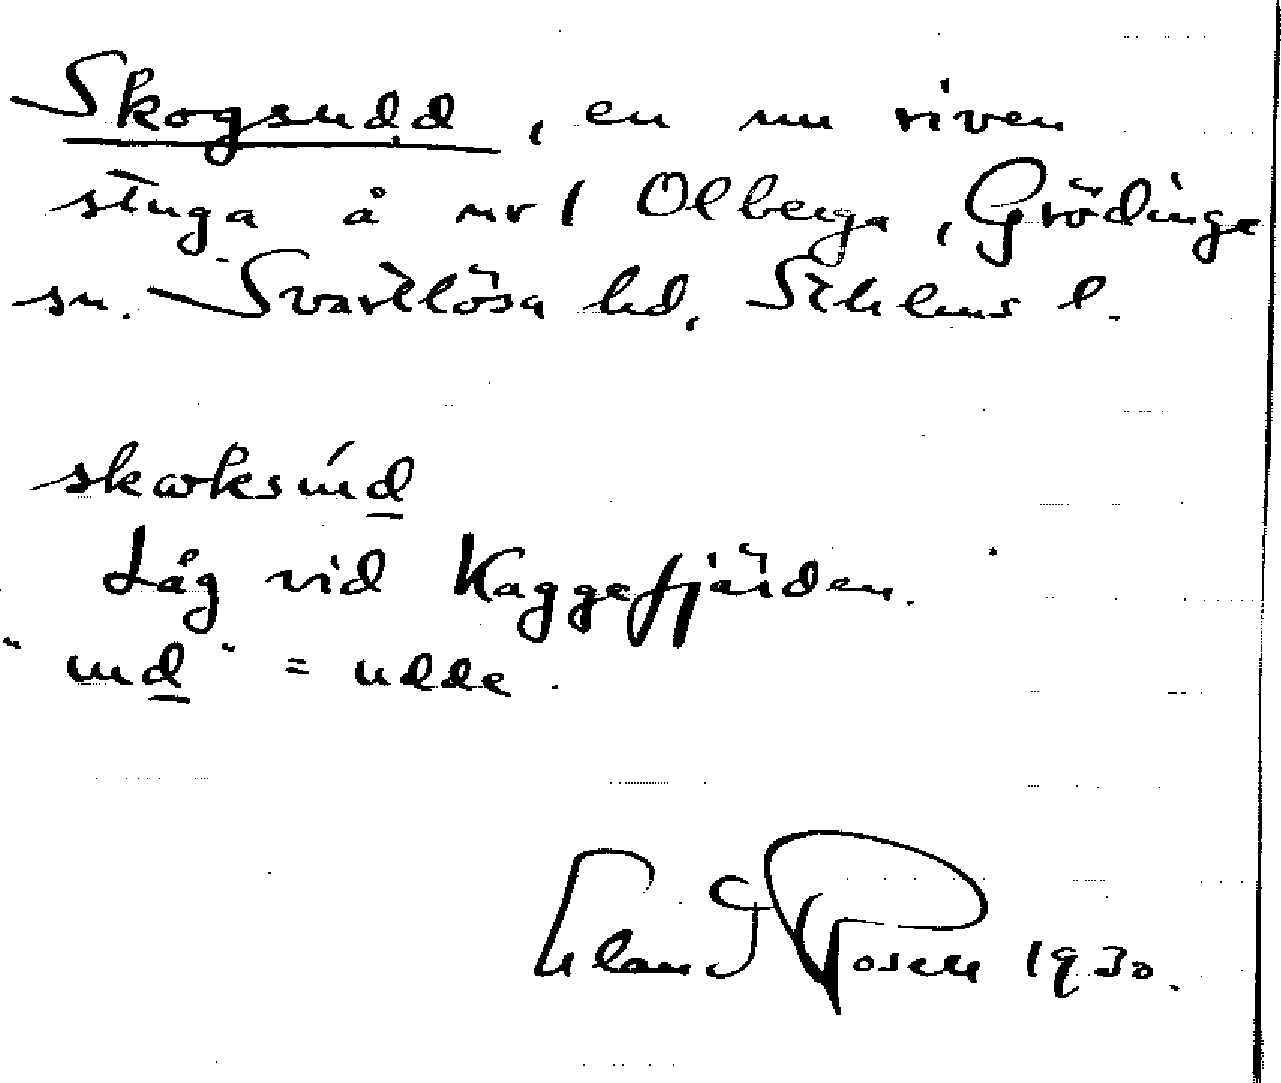 Skogsudd, en nu riven
stuga å nr 1 Olberga, Grödinge
sn. Svartlösa hd, Sthlms l.
Låg vid Kaggefjärden.
"ud" = udde.
Rosell 1930.